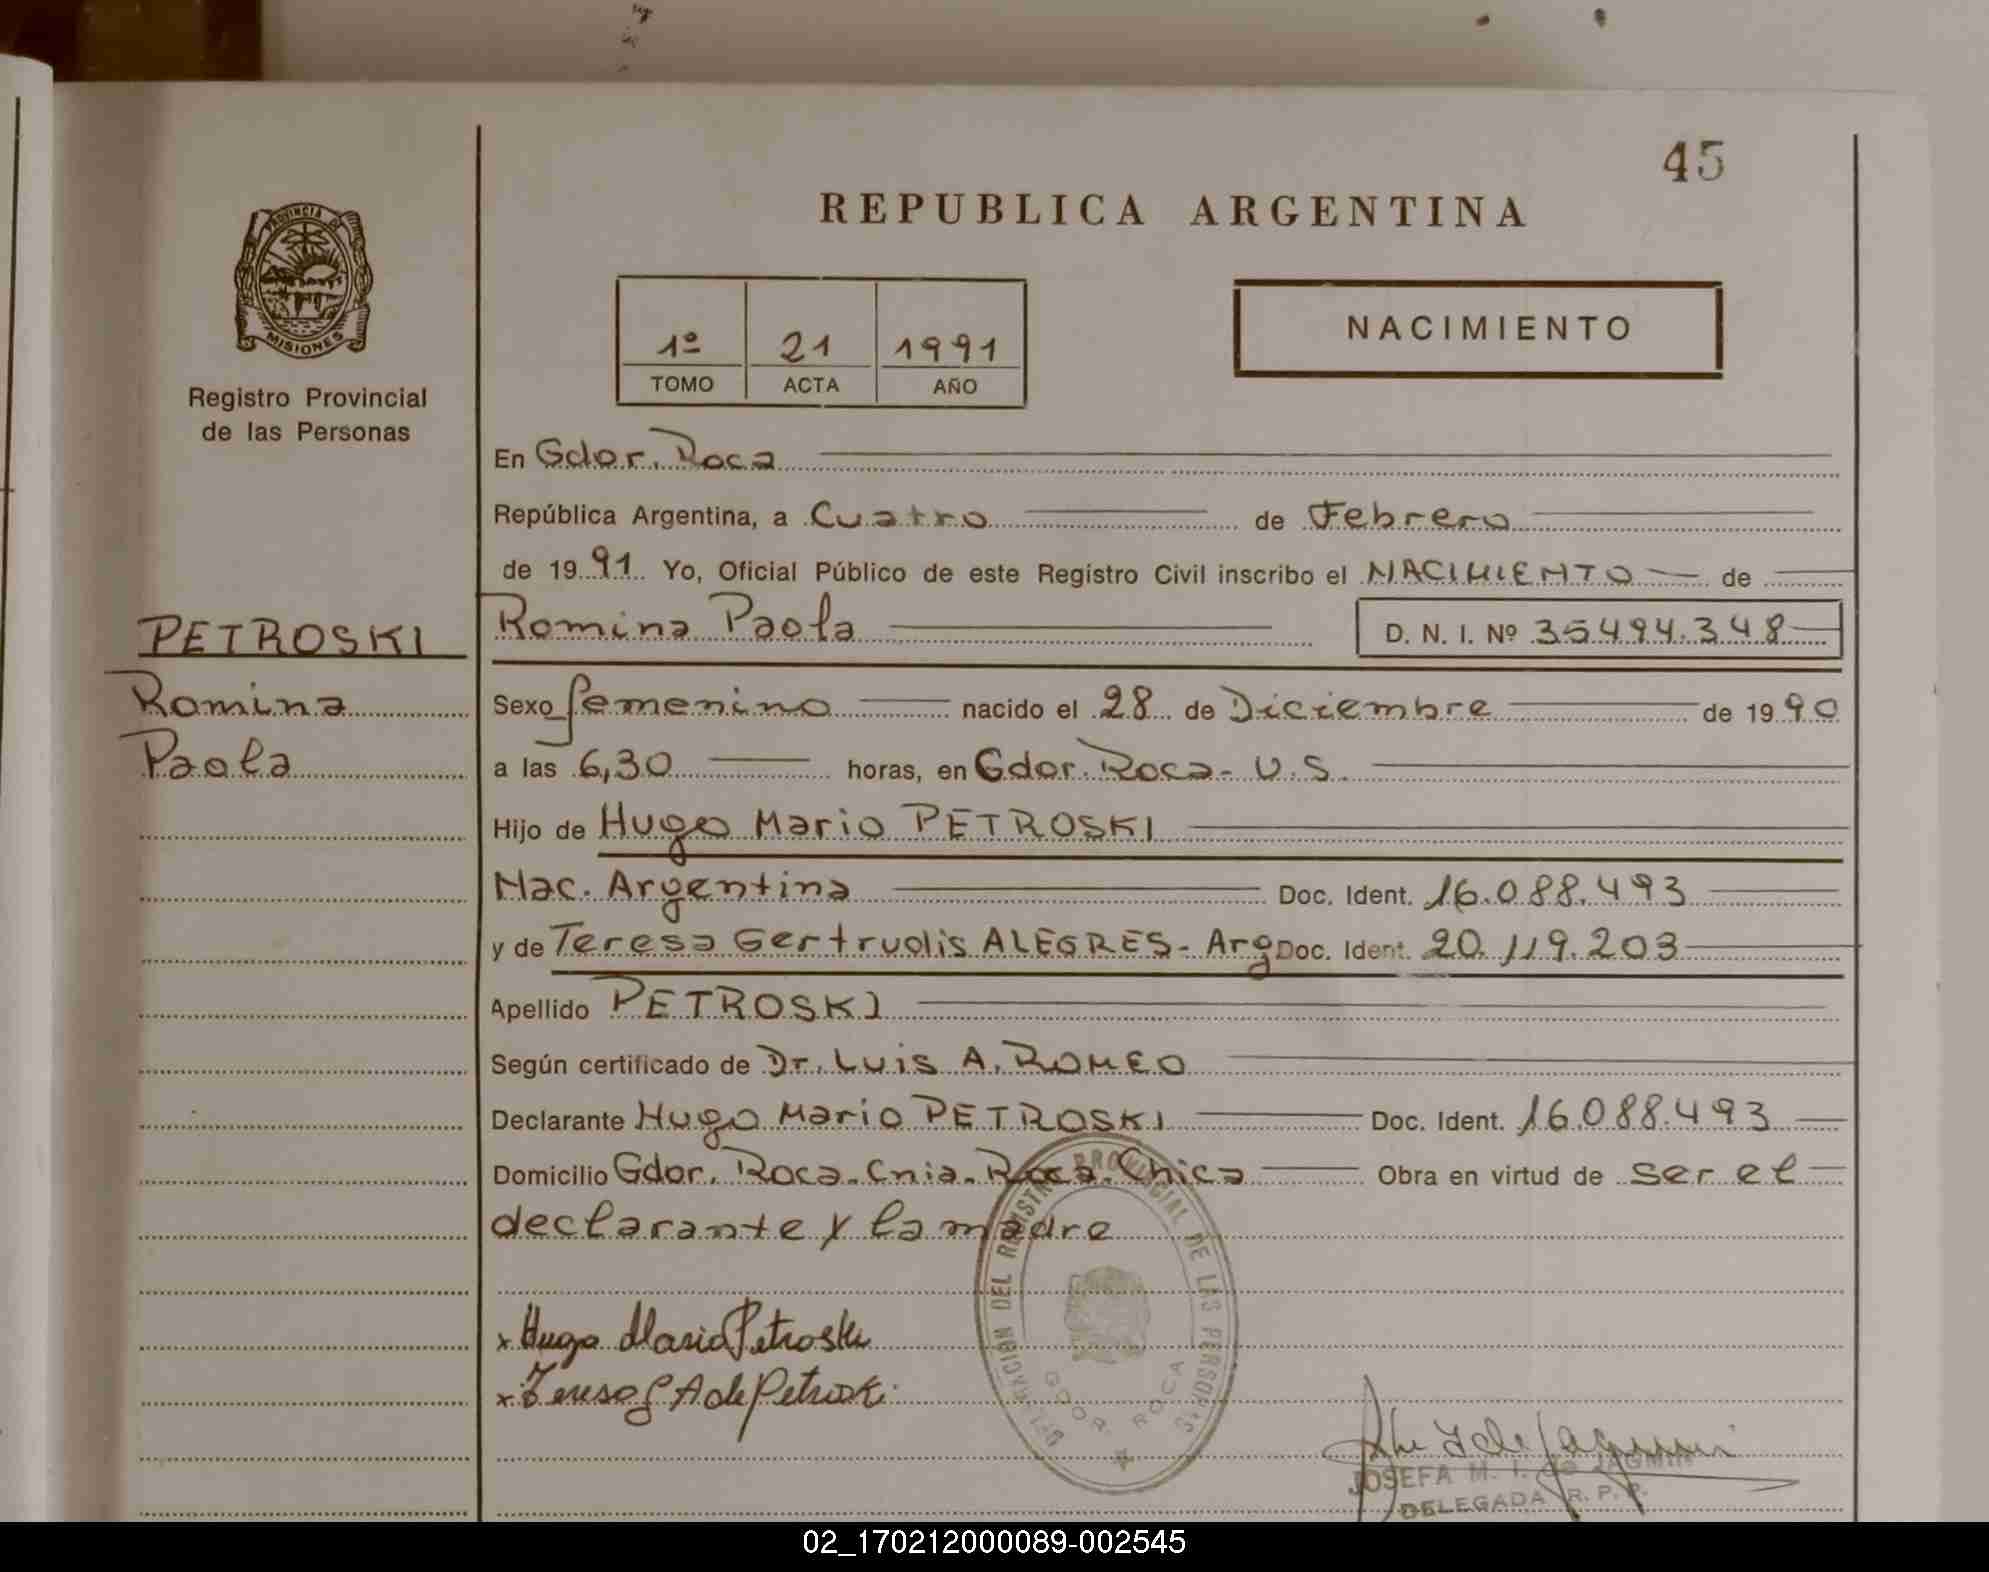 45
REPUBLICA ARGENTINA
PROVINCIA DE
MISIONES
Registro Provincial
de las Personas
1º 21 1991
TOMO ACTA AÑO
NACIMIENTO
En Gdor. Roca
República Argentina, a Cuatro de Febrero
de 1991 Yo, Oficial Público de este Registro Civil inscribo el NACIMIENTO de
PETROSKI
Romina
Paola
Romina Paola D. N. I. Nº 35494.348
Sexo femenino nacido el 28 de Diciembre de 1990
a las 6,30 horas, en Gdor. Roca - U.S.
Hijo de Hugo Mario PETROSKI
Nac. Argentina Doc. Ident. 16.088.493
y de Teresa Gertrudis ALEGRES - Arg Doc. Ident. 20.119.203
Apellido PETROSKI
Según certificado de Dr. Luis A. ROMEO
Declarante Hugo Mario PETROSKI Doc. Ident. 16.088.493
Domicilio Gdor. Roca. Cnia. Roca Chica Obra en virtud de ser el
declarante y la madre
x Hugo Mario Petroski
x Teresa G A de Petroski
DELEGACION DEL REGISTRO PROVINCIAL DE LAS PERSONAS
GDOR. ROCA
JOSEFA M. I. de
DELEGADA R. P. P.
02_170212000089-002545